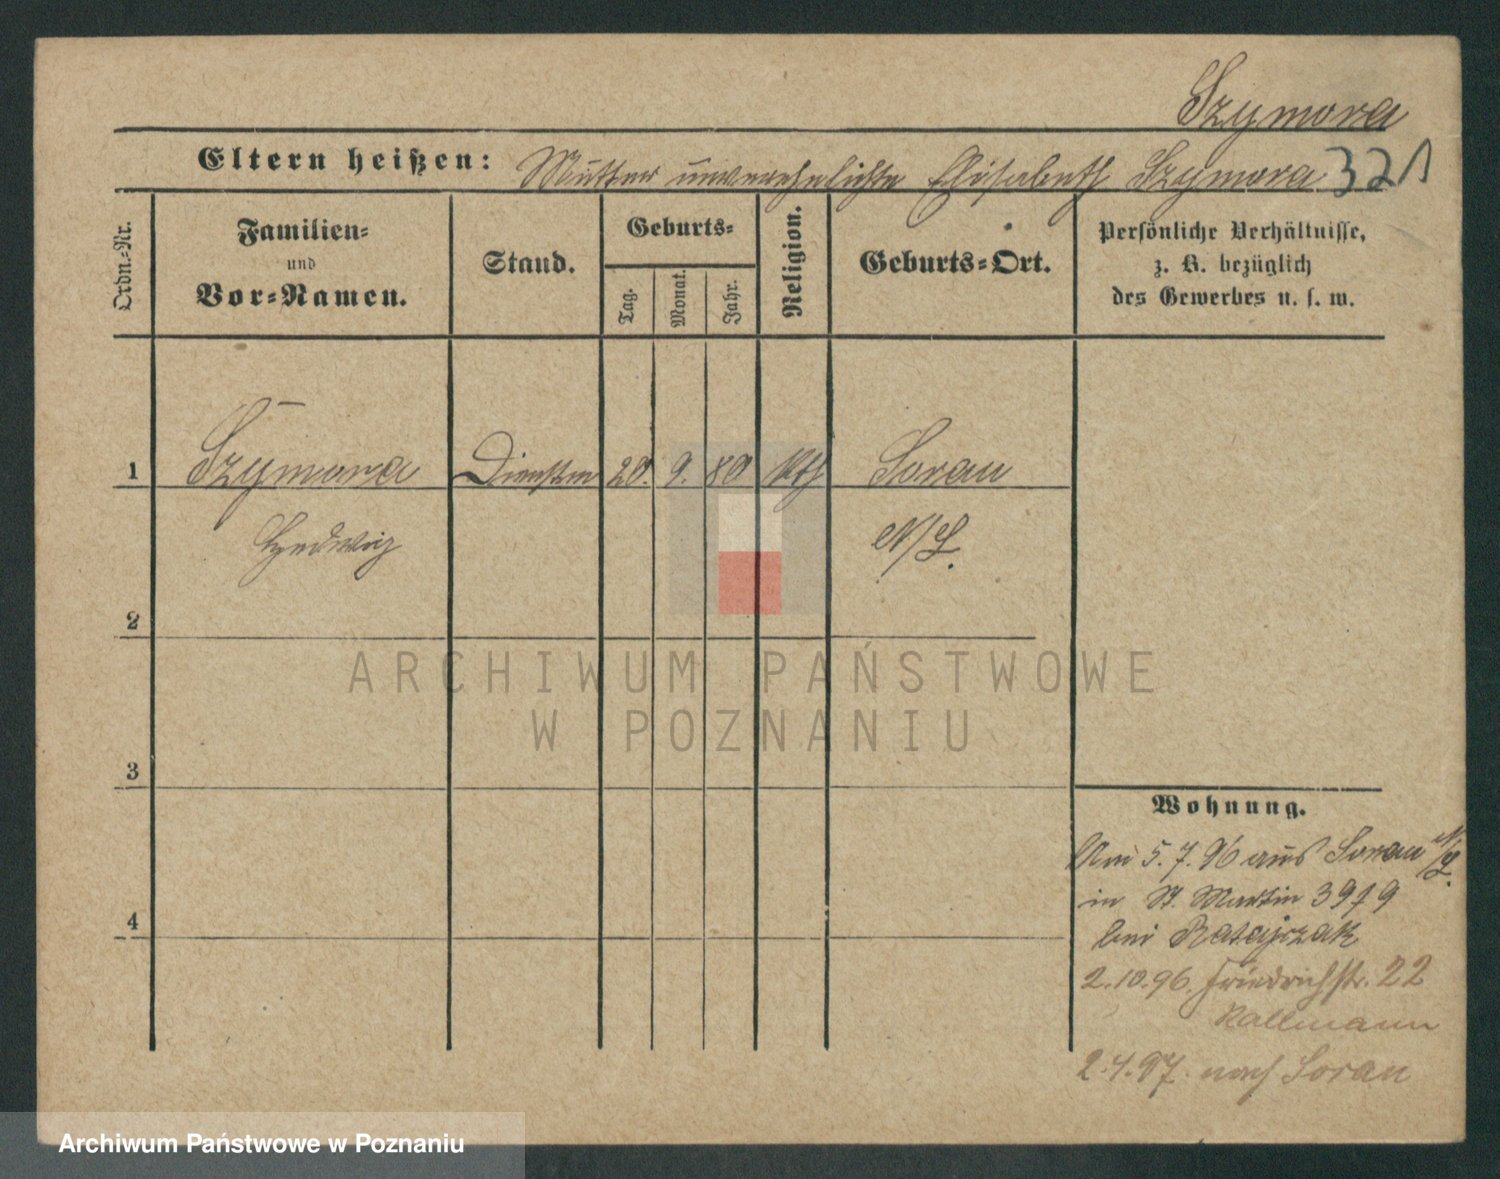 Szymora
Eltern heißen: Mutter unverehelichte Elisabeth Szymora 321
Ordn.-Nr.
Familien-
und
Vor-Namen.
Stand.
Geburts-
Tag.
Monat.
Jahr.
Religion.
Geburts-Ort.
Persönliche Verhältnisse,
z. B. bezüglich
des Gewerbes u. s. w.
1 Szymora 20. 9. 80 kth Sorau
Hedwig N/L.
2
3
4
Wohnung.
Am 5.7.96 aus Sorau N/L.
in St. Martin 39 f 9
bei Ratajczak
2.10.96. Friedrichstr. 22
Kallmann
2.4.97. nach Sorau
ARCHIWUM PAŃSTWOWE
W POZNANIU
Archiwum Państwowe w Poznaniu